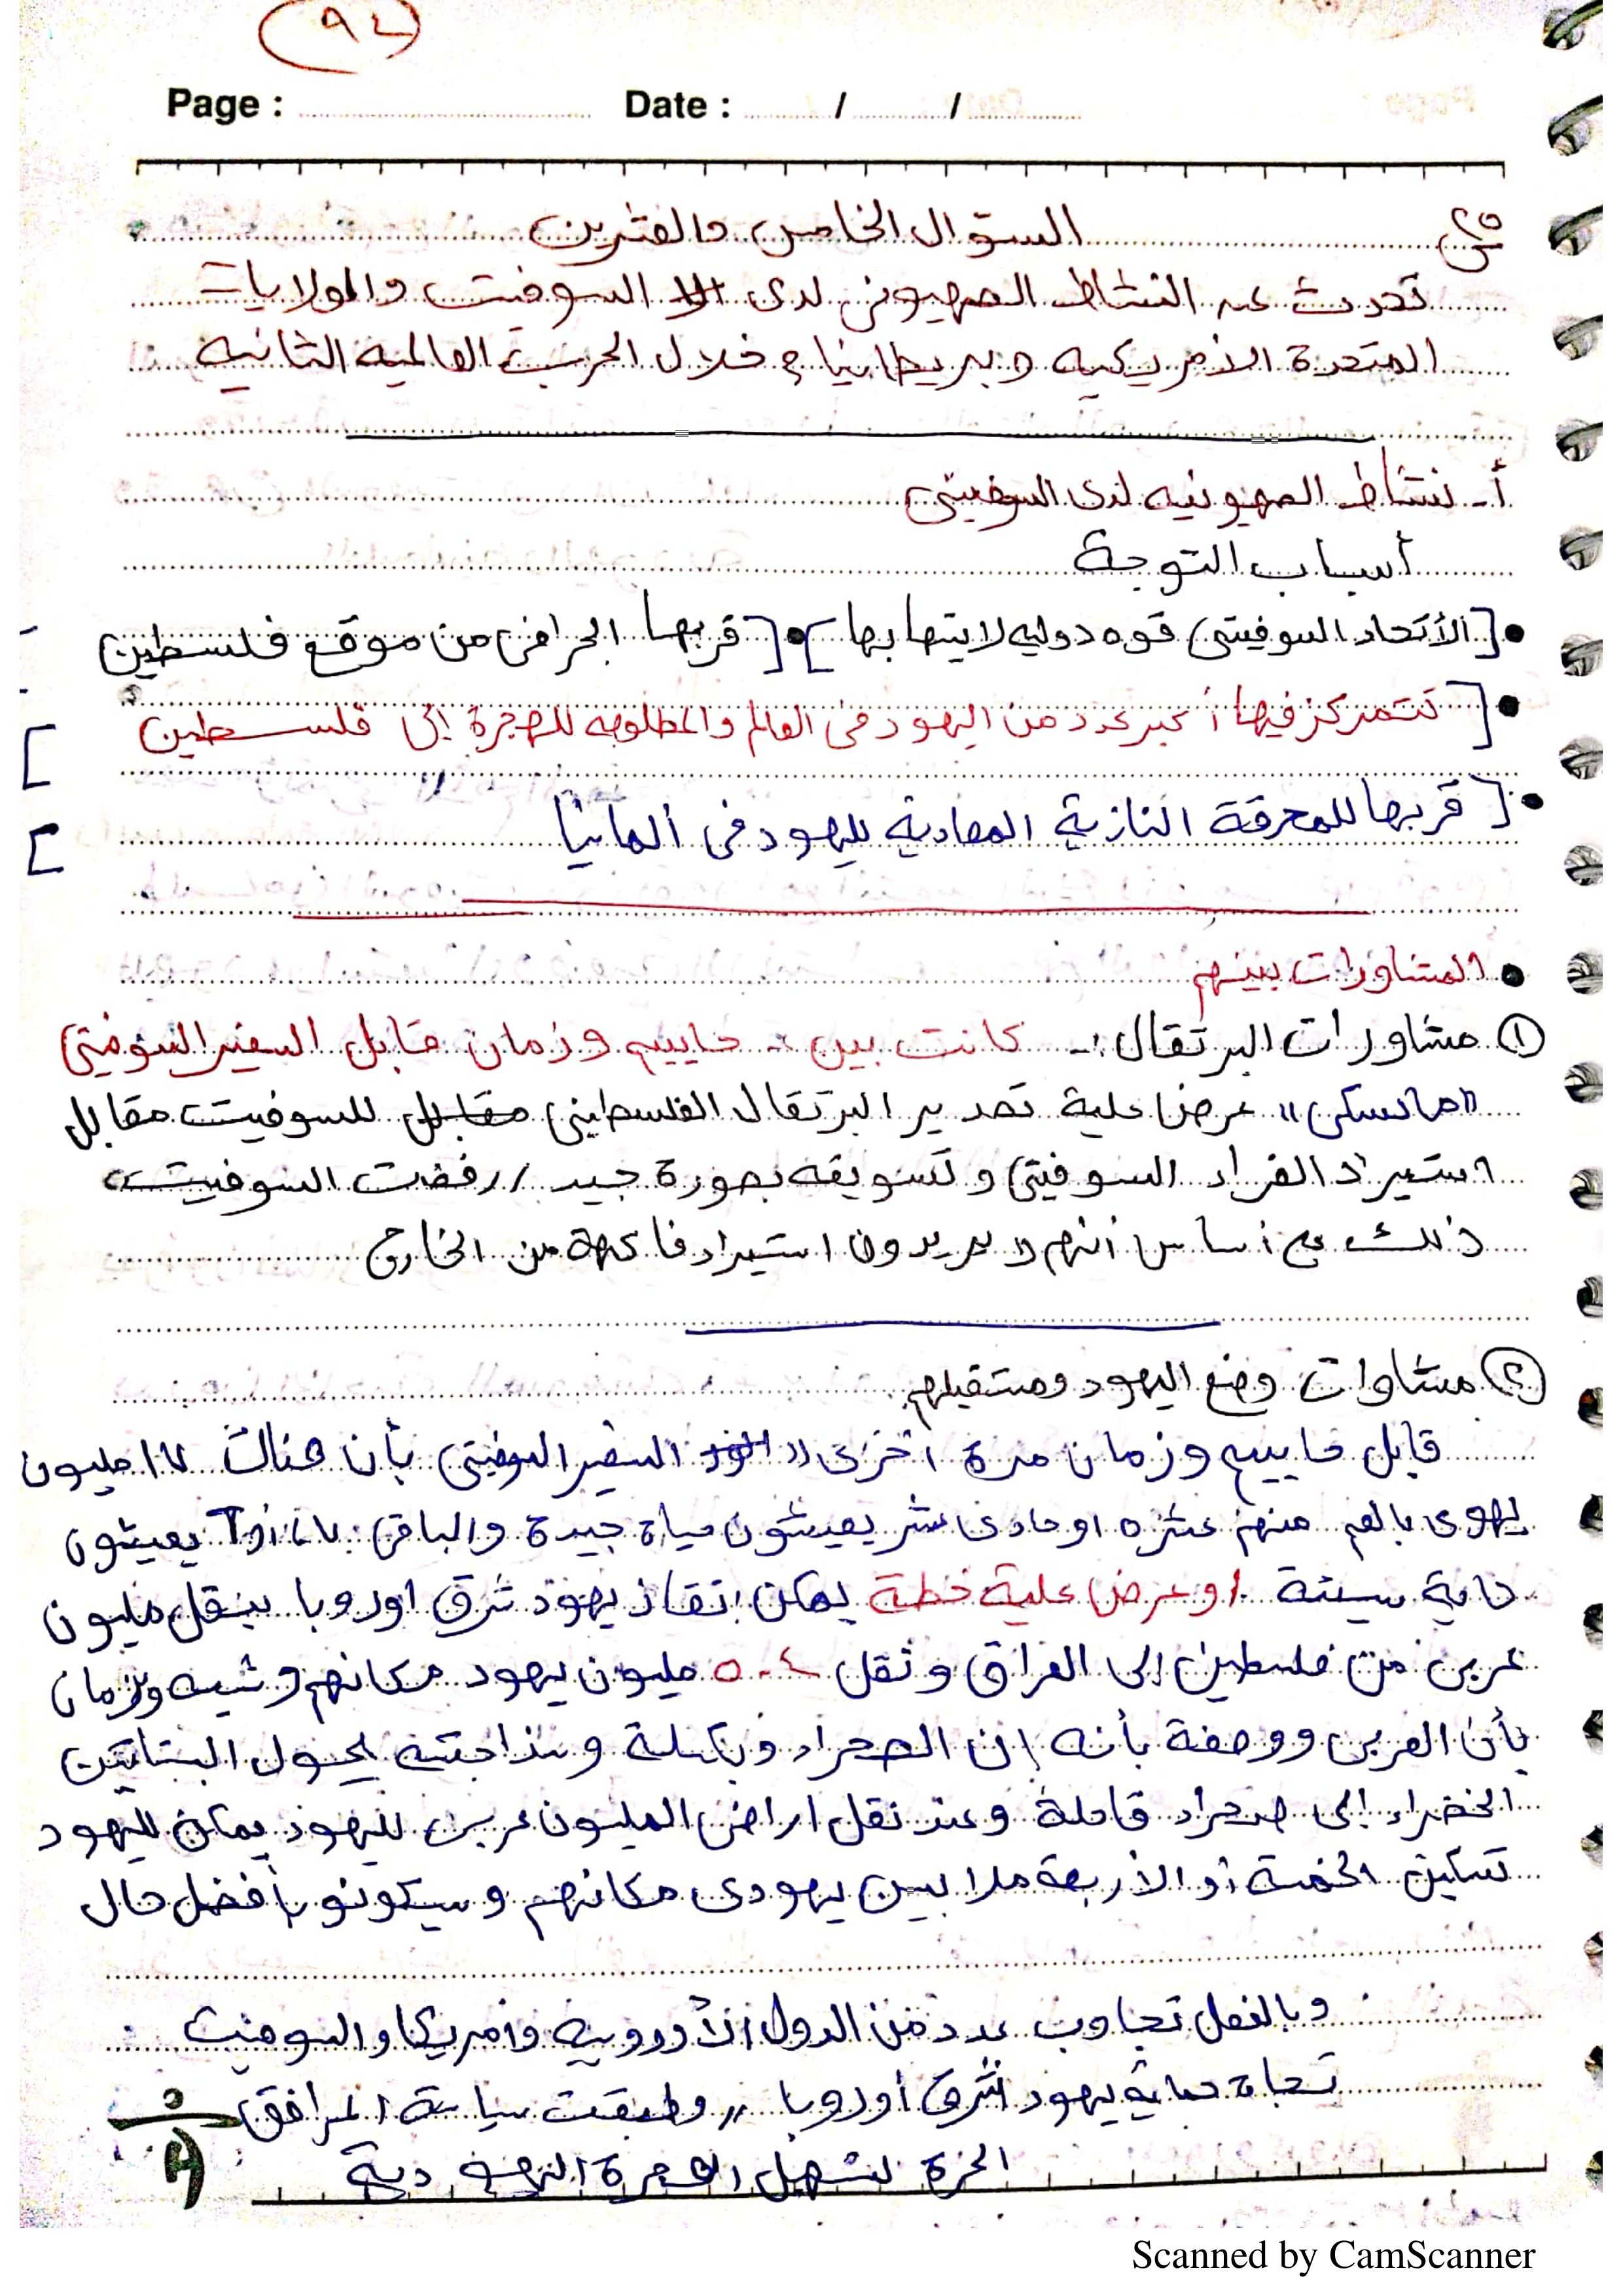 ٩٢
Page : Date : / /
س٢٥ السؤال الخامس والعشرين
تحدث عن النشاط الصهيوني لدى السوفيت والولايات
المتحدة الأمريكيه وبريطانيا خلال الحرب العالميه الثانيه
أ- نشاط الصهيونيه لدى السوفيتى
أسباب التوجة
• [الأتحاد السوفيتى قوه دوليه لا يتهابها] • [قربها الجرافى من موقع فلسطين
• [تتمركز فيها أكبر عدد من اليهود فى العالم والمطلوبه للهجرة إلى فلسطين]
• [قربها للمحرقة النازية المعادية لليهود فى ألمانيا]
• المشاورات بينهم
① مشاورات البرتقال :- كانت بين :- حاييم وزمان قابل السفير السوفيتى
"مايسكى" عرض علية تصدير البرتقال الفلسطينى للسوفيت مقابل
استيراد الفراء السوفيتى وتسويقه بصورة جيد // رفضت السوفيت
ذلك على أساس أنهم لا يريدون استيراد فاكهة من الخارج
② مشاوات وضع اليهود ومستقبلهم
قابل حاييم وزمان مرة أخرى السفير السوفيتى بأن هناك ١٧ مليون
يهوى بالعم منهم عشره او حادى عشر يعيشون حياة جيدة والباقى ٧،٦ يعيشون
سيئة / وعرض علية خطة يمكن إنقاذ يهود شرق اوروبا بنقل مليون
عربى من فلسطين إلى العراق ونقل ٤-٥ مليون يهود مكانهم وشبه وزمان
بأن العربى ووصفة بأنه إبن الصحراء وبكسلة وسذاجته يحول البساتين
الخضراء إلى صحراء قاحلة وعند نقل اراضى المليون عربى لليهود يمكن لليهود
تسكين الخمسة أو الأربعة ملايين يهودى مكانهم وسيكونو بأفضل حال
وبالفعل تجاوب عدد من الدول الأوروبية وأمريكا والسوفيت
تجاة حماية يهود شرق أوروبا // وطبقت سياسة المرافق
الحرة لتسهيل الهجرة اليهودية
Scanned by CamScanner